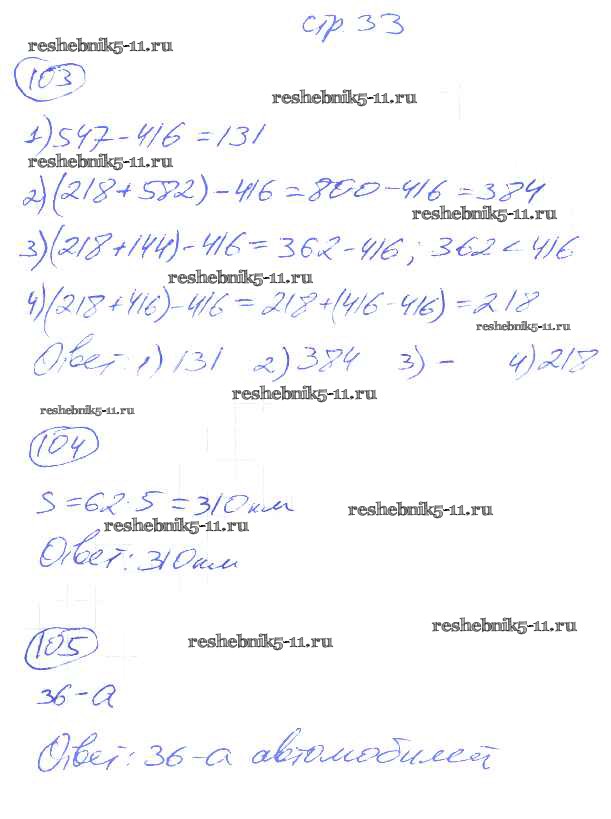 стр 33
reshebnik5-11.ru
103
reshebnik5-11.ru
1) 547 - 416 = 131
reshebnik5-11.ru
2) (218 + 582) - 416 = 800 - 416 = 384
reshebnik5-11.ru
3) (218 + 144) - 416 = 362 - 416; 362 < 416
reshebnik5-11.ru
4) (218 + 416) - 416 = 218 + (416 - 416) = 218
reshebnik5-11.ru
Ответ: 1) 131 2) 384 3) - 4) 218
reshebnik5-11.ru
reshebnik5-11.ru
104
S = 62 · 5 = 310 км
reshebnik5-11.ru
reshebnik5-11.ru
Ответ: 310 км
reshebnik5-11.ru
105
reshebnik5-11.ru
36 - а
Ответ: 36 - а автомобилей